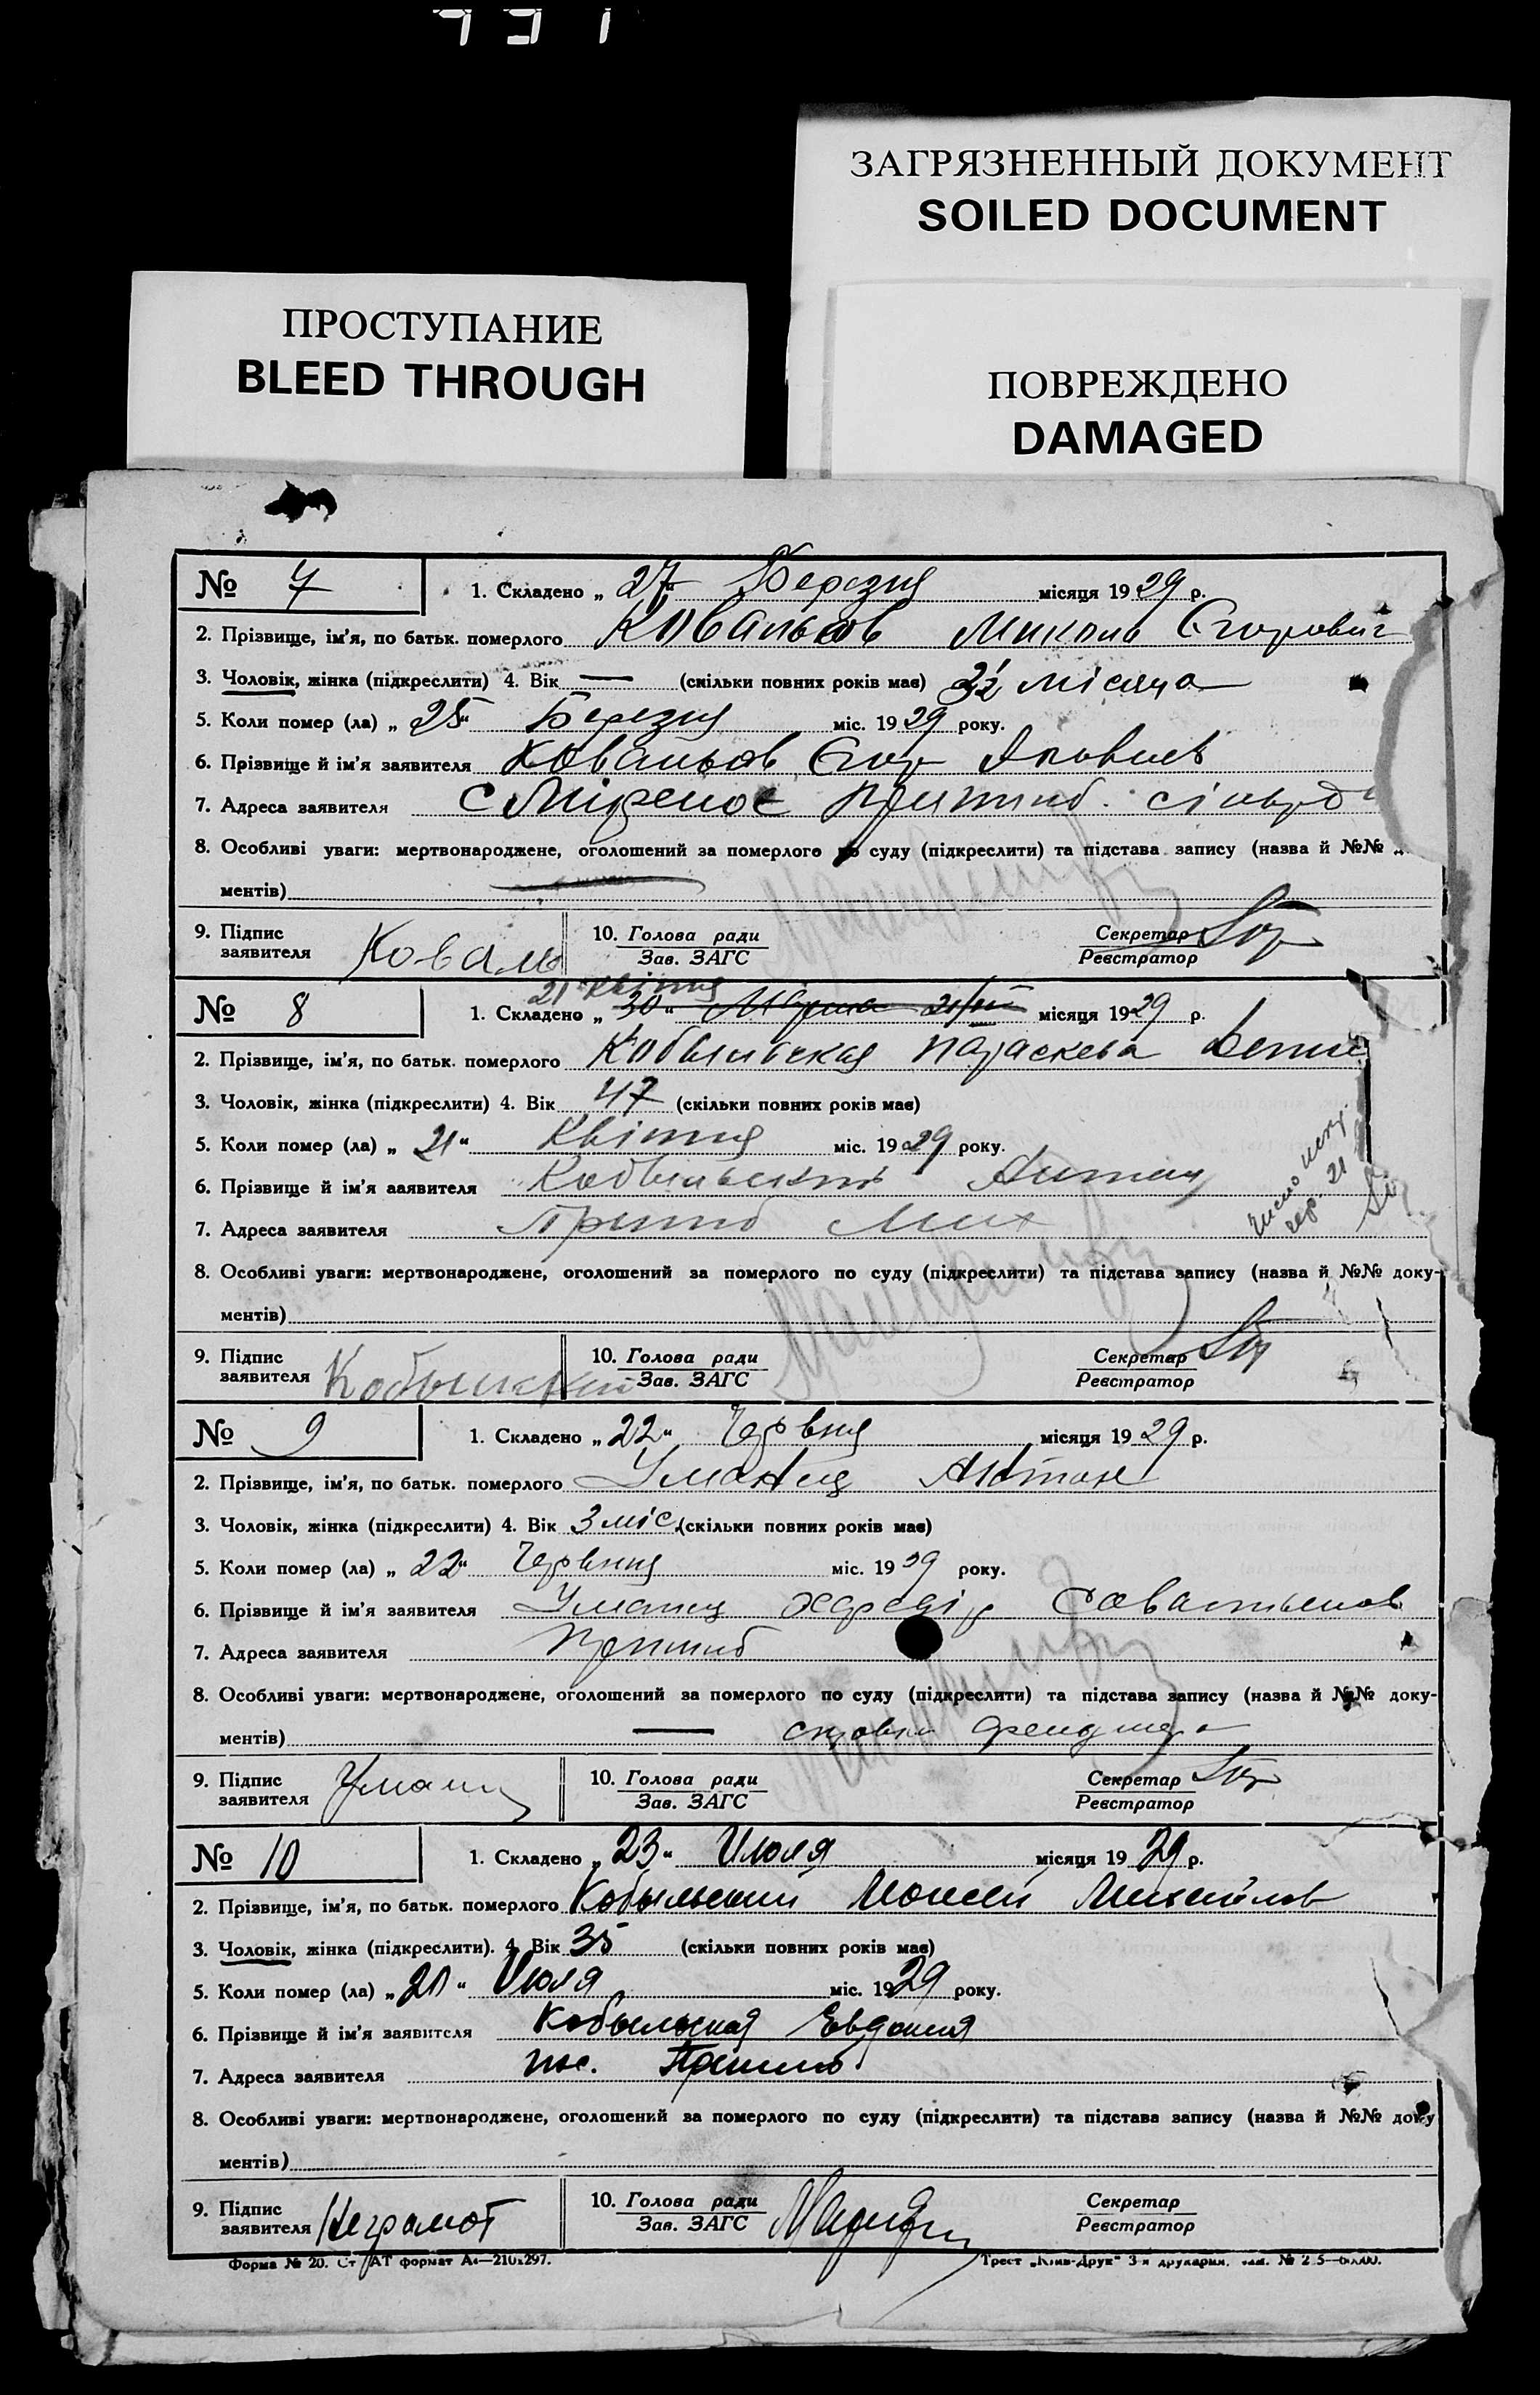 ЗАГРЯЗНЕННЫЙ ДОКУМЕНТ
SOILED DOCUMENT
ПРОСТУПАНИЕ
BLEED THROUGH
ПОВРЕЖДЕНО
DAMAGED
№ 7 1. Складено „ 27 “ Березня місяця 1929 р.
2. Прізвище, ім'я, по батьк. померлого Ковальов Микола Єгорович
3. Чоловік, жінка (підкреслити) 4. Вік — (скільки повних років має) місяца
5. Коли помер (ла) „ 25 “ Березня міс. 1929 року.
6. Прізвище й ім'я заявителя Ковальов Єгор Яковлев
7. Адреса заявителя с
8. Особливі уваги: мертвонароджене, оголошений за померлого по суду (підкреслити) та підстава запису (назва й №№
ментів)
9. Підпис заявителя Коваль 10. Голова ради Зав. ЗАГС Секретар Реєстратор
21 Квітня
№ 8 1. Складено „ 30 “ Марта місяця 1929 р.
2. Прізвище, ім'я, по батьк. померлого Кобыльская Параскева
3. Чоловік, жінка (підкреслити) 4. Вік 47 (скільки повних років має)
5. Коли помер (ла) „ 21 “ Квітня міс. 1929 року.
6. Прізвище й ім'я заявителя Кобыльский Антон
7. Адреса заявителя
8. Особливі уваги: мертвонароджене, оголошений за померлого по суду (підкреслити) та підстава запису (назва й №№ доку-
ментів)
9. Підпис заявителя Кобыльский 10. Голова ради Зав. ЗАГС Секретар Реєстратор
№ 9 1. Складено „ 22 “ Червня місяця 1929 р.
2. Прізвище, ім'я, по батьк. померлого Уманец Антон
3. Чоловік, жінка (підкреслити) 4. Вік 3 міс. (скільки повних років має)
5. Коли помер (ла) „ 22 “ Червня міс. 1929 року.
6. Прізвище й ім'я заявителя Уманец
7. Адреса заявителя
8. Особливі уваги: мертвонароджене, оголошений за померлого по суду (підкреслити) та підстава запису (назва й №№ доку-
ментів) — справка фельдшера
9. Підпис заявителя Уманец 10. Голова ради Зав. ЗАГС Секретар Реєстратор
№ 10 1. Складено „ 23 “ Июля місяця 1929 р.
2. Прізвище, ім'я, по батьк. померлого Кобыльский Моисей Михайлов
3. Чоловік, жінка (підкреслити). 4. Вік 35 (скільки повних років має)
5. Коли помер (ла) „ 20 “ Июля міс. 1929 року.
6. Прізвище й ім'я заявителя Кобыльская Евдокия
7. Адреса заявителя пос.
8. Особливі уваги: мертвонароджене, оголошений за померлого по суду (підкреслити) та підстава запису (назва й №№ доку
ментів)
9. Підпис заявителя Неграмот 10. Голова ради Зав. ЗАГС Секретар Реєстратор
Форма № 20. формат А4—210x297. Трест „Київ-Друк“ 3-я друкарня.